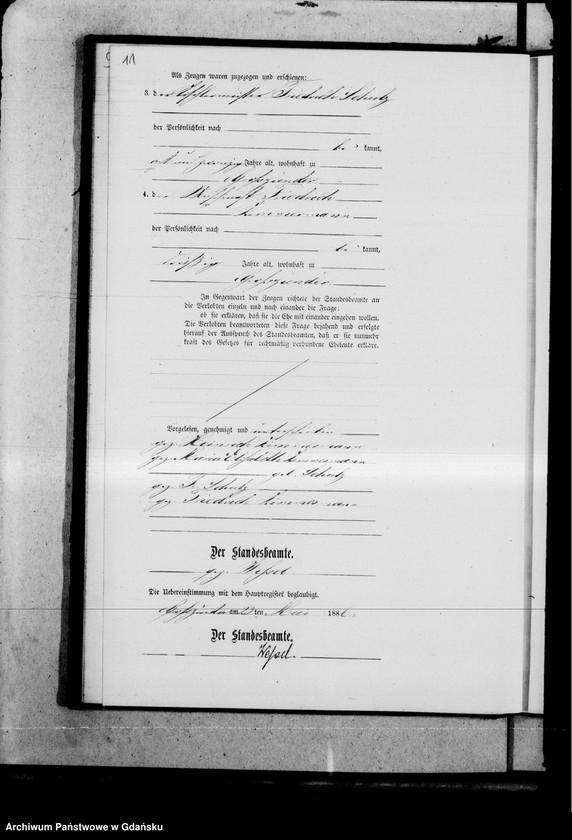 11
Als Zeugen waren zugezogen und erschienen:
3. der Tischlermeister Friedrich Schulz
der Persönlichkeit nach
be kannt,
Jahre alt, wohnhaft zu
Großzünder
4. der Friedrich
Zimmermann
der Persönlichkeit nach
be kannt,
dreißig Jahre alt, wohnhaft zu
Großzünder
In Gegenwart der Zeugen richtete der Standesbeamte an
die Verlobten einzeln und nach einander die Frage:
ob sie erklären, daß sie die Ehe mit einander eingehen wollen.
Die Verlobten beantworteten diese Frage bejahend und erfolgte
hierauf der Ausspruch des Standesbeamten, daß er sie nunmehr
kraft des Gesetzes für rechtmäßig verbundene Eheleute erkläre.
Vorgelesen, genehmigt und unterschrieben
gez. Heinrich Zimmermann
gez. Maria Zimmermann
geb. Schulz
gez. F. Schulz
gez. Friedrich Zimmermann
Der Standesbeamte.
gez. Wessel
Die Uebereinstimmung mit dem Hauptregister beglaubigt.
Großzünder am ten Mai 188
Der Standesbeamte.
Wessel.
Archiwum Państwowe w Gdańsku